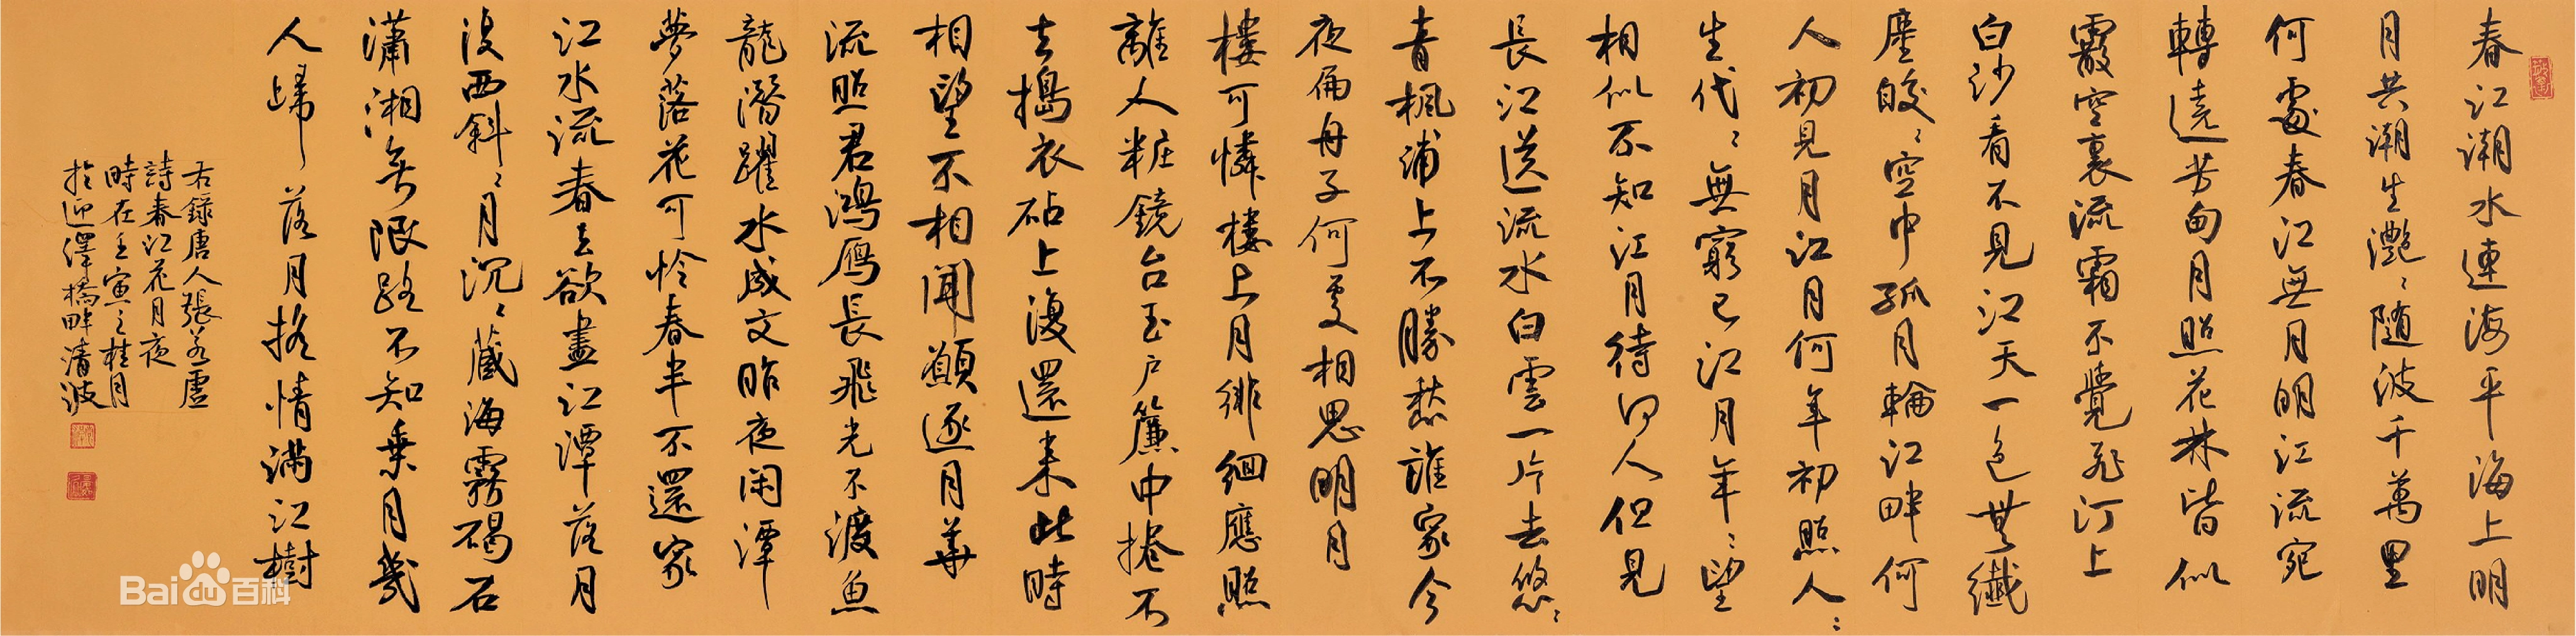 春江潮水連海平海上明
月共潮生灧〻隨波千萬里
何處春江無月明江流宛
轉遶芳甸月照花林皆似
霰空裏流霜不覺飛汀上
白沙看不見江天一色無纖
塵皎〻空中孤月輪江畔何
人初見月江月何年初照人〻
生代〻無窮已江月年〻望
相似不知江月待何人但見
長江送流水白雲一片去悠〻
青楓浦上不勝愁誰家今
夜扁舟子何處相思明月
樓可憐樓上月徘徊應照
離人粧鏡台玉戶簾中捲不
去搗衣砧上復還來此時
相望不相聞願逐月華
流照君鴻雁長飛光不渡魚
龍潛躍水成文昨夜闲潭
夢落花可怜春半不還家
江水流春去欲盡江潭落月
復西斜〻月沉〻藏海霧碣石
瀟湘無限路不知乘月幾
人歸落月搖情滿江樹
右錄唐人張若虛
詩春江花月夜
時在壬寅之桂月
於迎澤橋畔清波
Bai百科